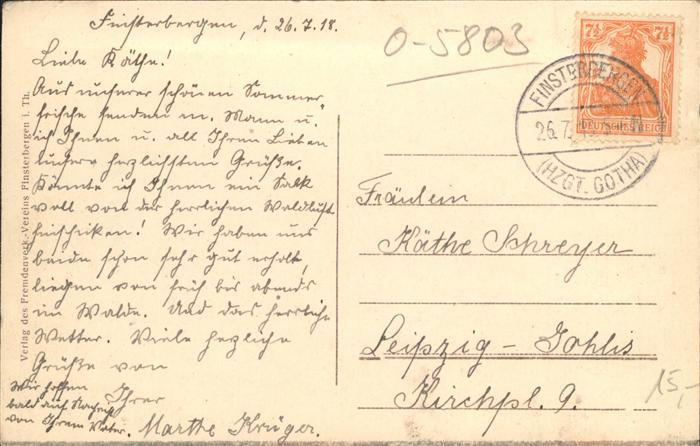 Finsterbergen, d. 26.7.18.
Liebe Käthe!
Aus unserer schönen Sommer-
frische senden m. Mann u.
ich Ihnen u. all Ihren Lieben
unsere herzlichsten Grüße.
Könnte ich Ihnen ein Sack
voll von der herrlichen Waldluft
hinschicken! Wir haben uns
beide schon sehr gut erholt,
liegen von früh bis abends
im Walde. Und das herrliche
Wetter. Viele herzliche
Grüße von
Ihrer
Marthe Krüger.
Wir hoffen
bald auf Nachr.
von Ihrem Vater.
Verlag des Fremdenverk.-Vereins Finsterbergen i. Th.
0-5803
7½ 7½
DEUTSCHES REICH
FINSTERBERGEN
26.7.
(HZGT. GOTHA)
Fräulein
Käthe Schreyer
Leipzig-Gohlis
Kirchpl. 9.
15,-